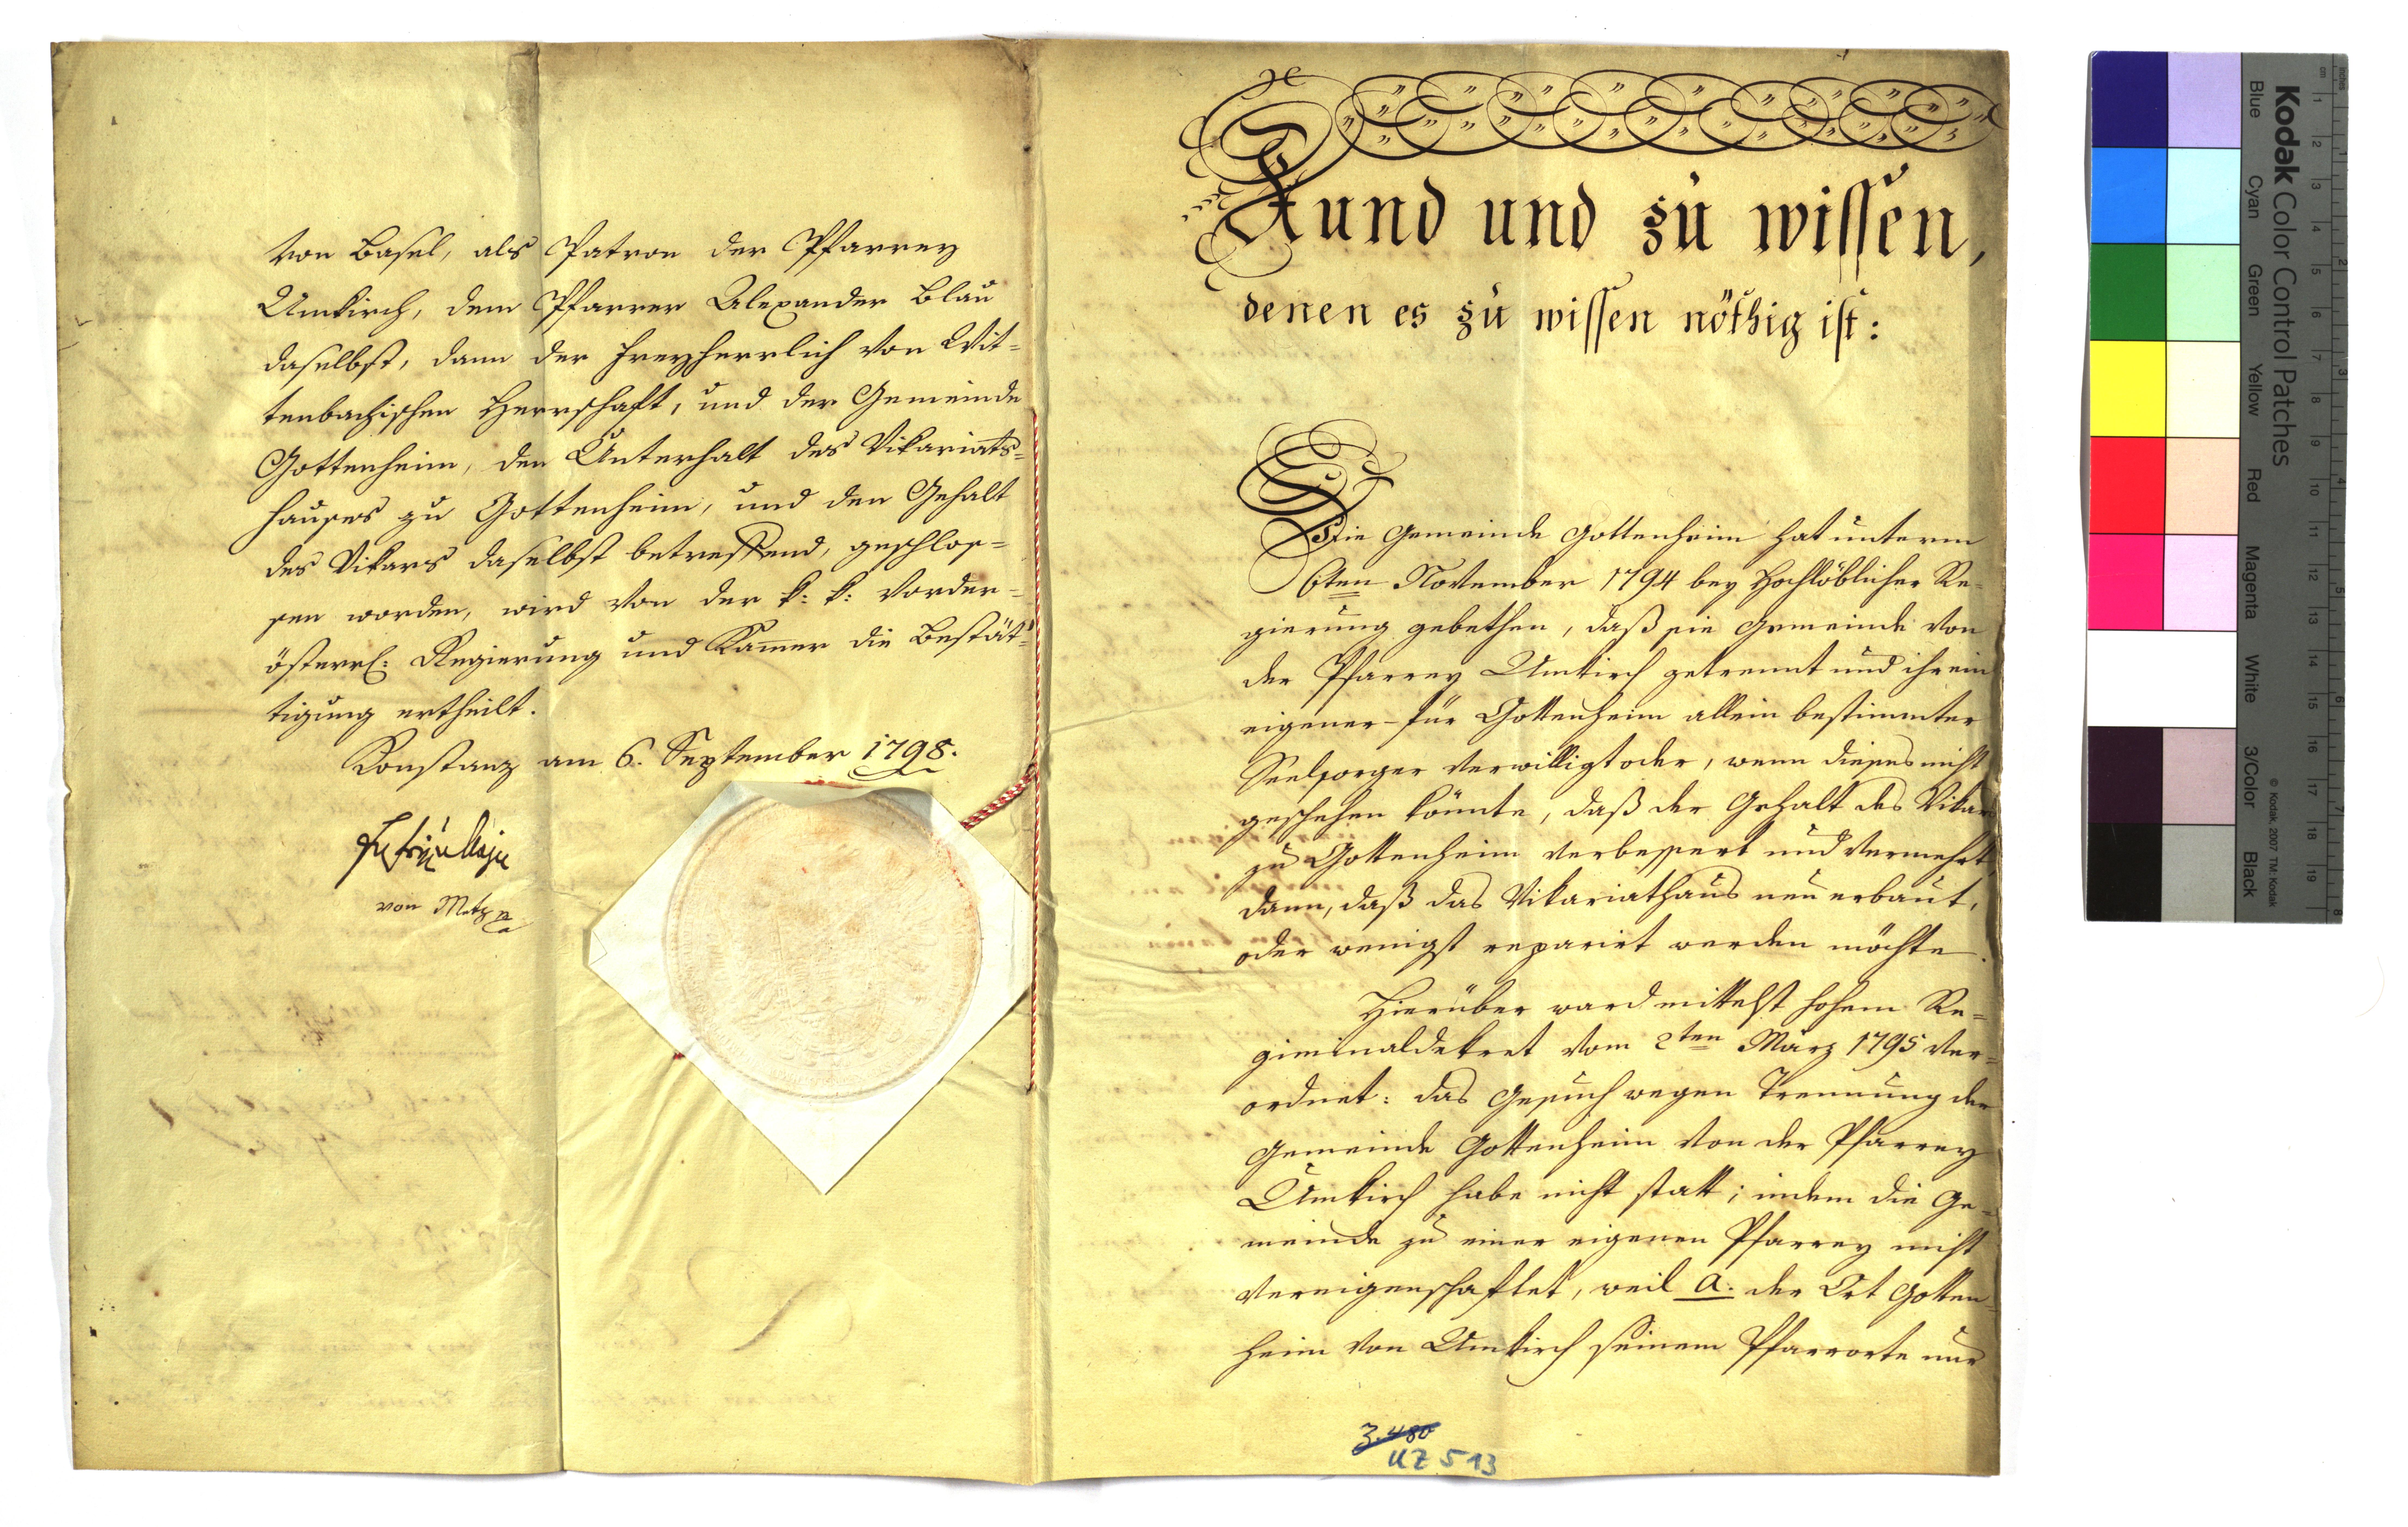 von Basel, als Patron der Pfarrey
Umkirch, dem Pfarrer Alexander Blau
daselbst, dann der Freyherrlich von Wit-
tenbachischen Herrschaft, und der Gemeinde
Gottenheim, den Unterhalt des Vikariats-
hauses zu Gottenheim, und den Gehalt
des Vikars daselbst betreffend, geschlos-
sen worden, wird von der k: k: vorder-
österrl: Regierung und Kammer die Bestät-
tigung ertheilt.
Konstanz am 6. September 1798.
von
Kund und zu wissen,
denen es zu wissen nöthig ist:
Die Gemeinde Gottenheim hat unterm
6ten November 1794 bey Hochlöblicher Re-
gierung gebethen, daß sie Gemeinde von
der Pfarrey Umkirch getrennt und ihr ein
eigener - für Gottenheim allein bestimmter
Seelsorger verwilligt oder, wenn dieses nicht
geschehen könnte, daß der Gehalt des Vikars
zu Gottenheim verbessert und vermehrt,
dann, daß das Vikariathaus neu erbaut,
oder wenigst reparirt werden möchte.
Hierüber ward mittelst hohem Re-
giminaldekret vom 2ten März 1795 ver-
ordnet: das Gesuch wegen Trennung der
Gemeinde Gottenheim von der Pfarrey
Umkirch habe nicht statt; indem die Ge-
meinde zu einer eigenen Pfarrey nicht
vereigenschaftet, weil a. der Ort Gotten-
heim von Umkirch seinem Pfarrorte nur
3.480
UZ 513
Kodak Color Control Patches
Blue
Cyan
Green
Yellow
Red
Magenta
White
3/Color
Black
© Kodak, 2007 TM: Kodak
cm 1 2 3 4 5 6 7 8 9 10 11 12 13 14 15 16 17 18 19
inches 1 2 3 4 5 6 7 8